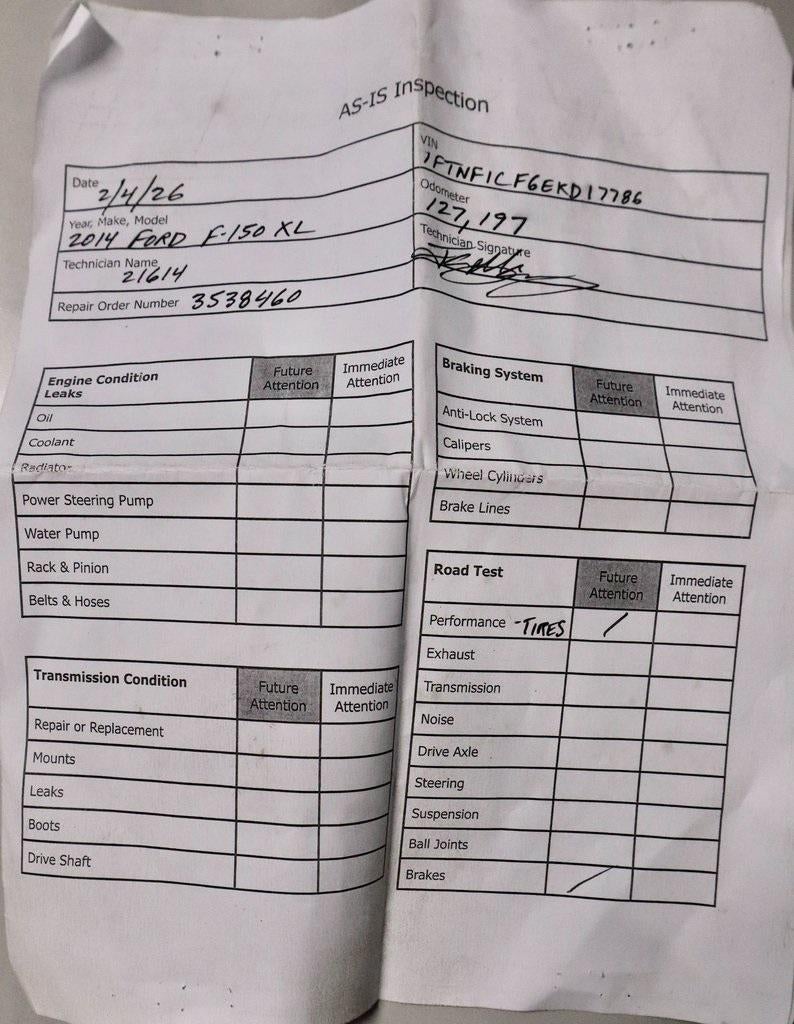 AS-IS Inspection
Date 2/4/26
VIN 1FTNF1CF6EKD17786
Year, Make, Model 2014 FORD F-150 XL
Odometer 127,197
Technician Name 21614
Technician Signature
Repair Order Number 3538460
Engine Condition Leaks Future Attention Immediate Attention
Oil
Coolant
Radiator
Power Steering Pump
Water Pump
Rack & Pinion
Belts & Hoses
Braking System Future Attention Immediate Attention
Anti-Lock System
Calipers
Wheel Cylinders
Brake Lines
Transmission Condition Future Attention Immediate Attention
Repair or Replacement
Mounts
Leaks
Boots
Drive Shaft
Road Test Future Attention Immediate Attention
Performance -TIRES /
Exhaust
Transmission
Noise
Drive Axle
Steering
Suspension
Ball Joints
Brakes /